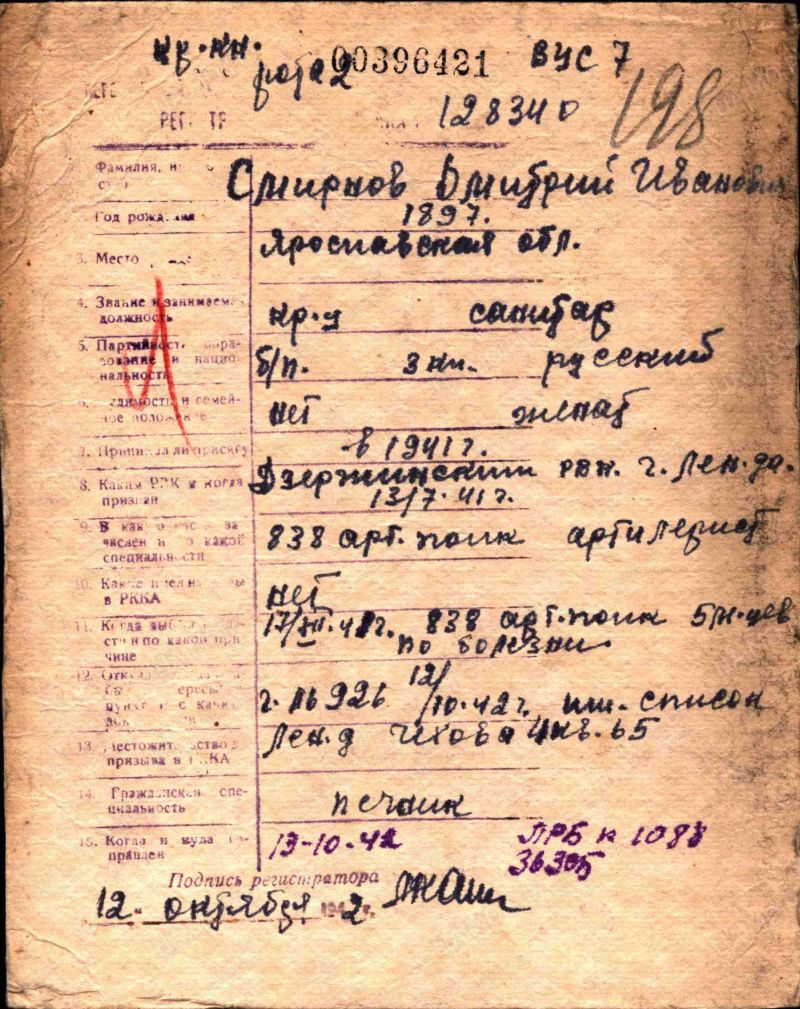 кр.кн. 00396421 ВУС 7
рота 2
128340 198
РЕГ
Фамилия, Смирнов Дмитрий Иванович
Год 1897.
3. Место Ярославская обл.
4. Звание и занимаем. должность кр-ц санитар
5. Партийность образование и нацио-
нальность б/п. 3 кл. русский
и семей-
ное положение нет женат
7. Принимал ли присягу в 1941 г.
8. Каким РВК и когда
призван Дзержинским рвк. г. Лен-да.
13/7.41 г.
9. В за-
числен и по какой
специальности 838 арт.полк артилерист
10. Какие
в РККА нет
11. Когда
сти и по какой при-
чине 17/XII.41г. 838 арт.полк
по болезни
12.
12/10.42г. им.список
13.
призыва в РККА Лен.д Чехова 4 кв.65
14. Гражданская спе-
циальность печник
15. Когда и куда на-
правлен 13-10-42 ЛРБ к 1088
36305
Подпись регистратора
12 октября 1942 г.